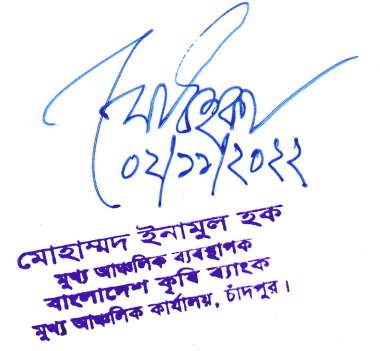 ০২/১১/২০২২
মোহাম্মদ ইনামুল হক
মুখ্য আঞ্চলিক ব্যবস্থাপক
বাংলাদেশ কৃষি ব্যাংক
মুখ্য আঞ্চলিক কার্যালয়, চাঁদপুর।